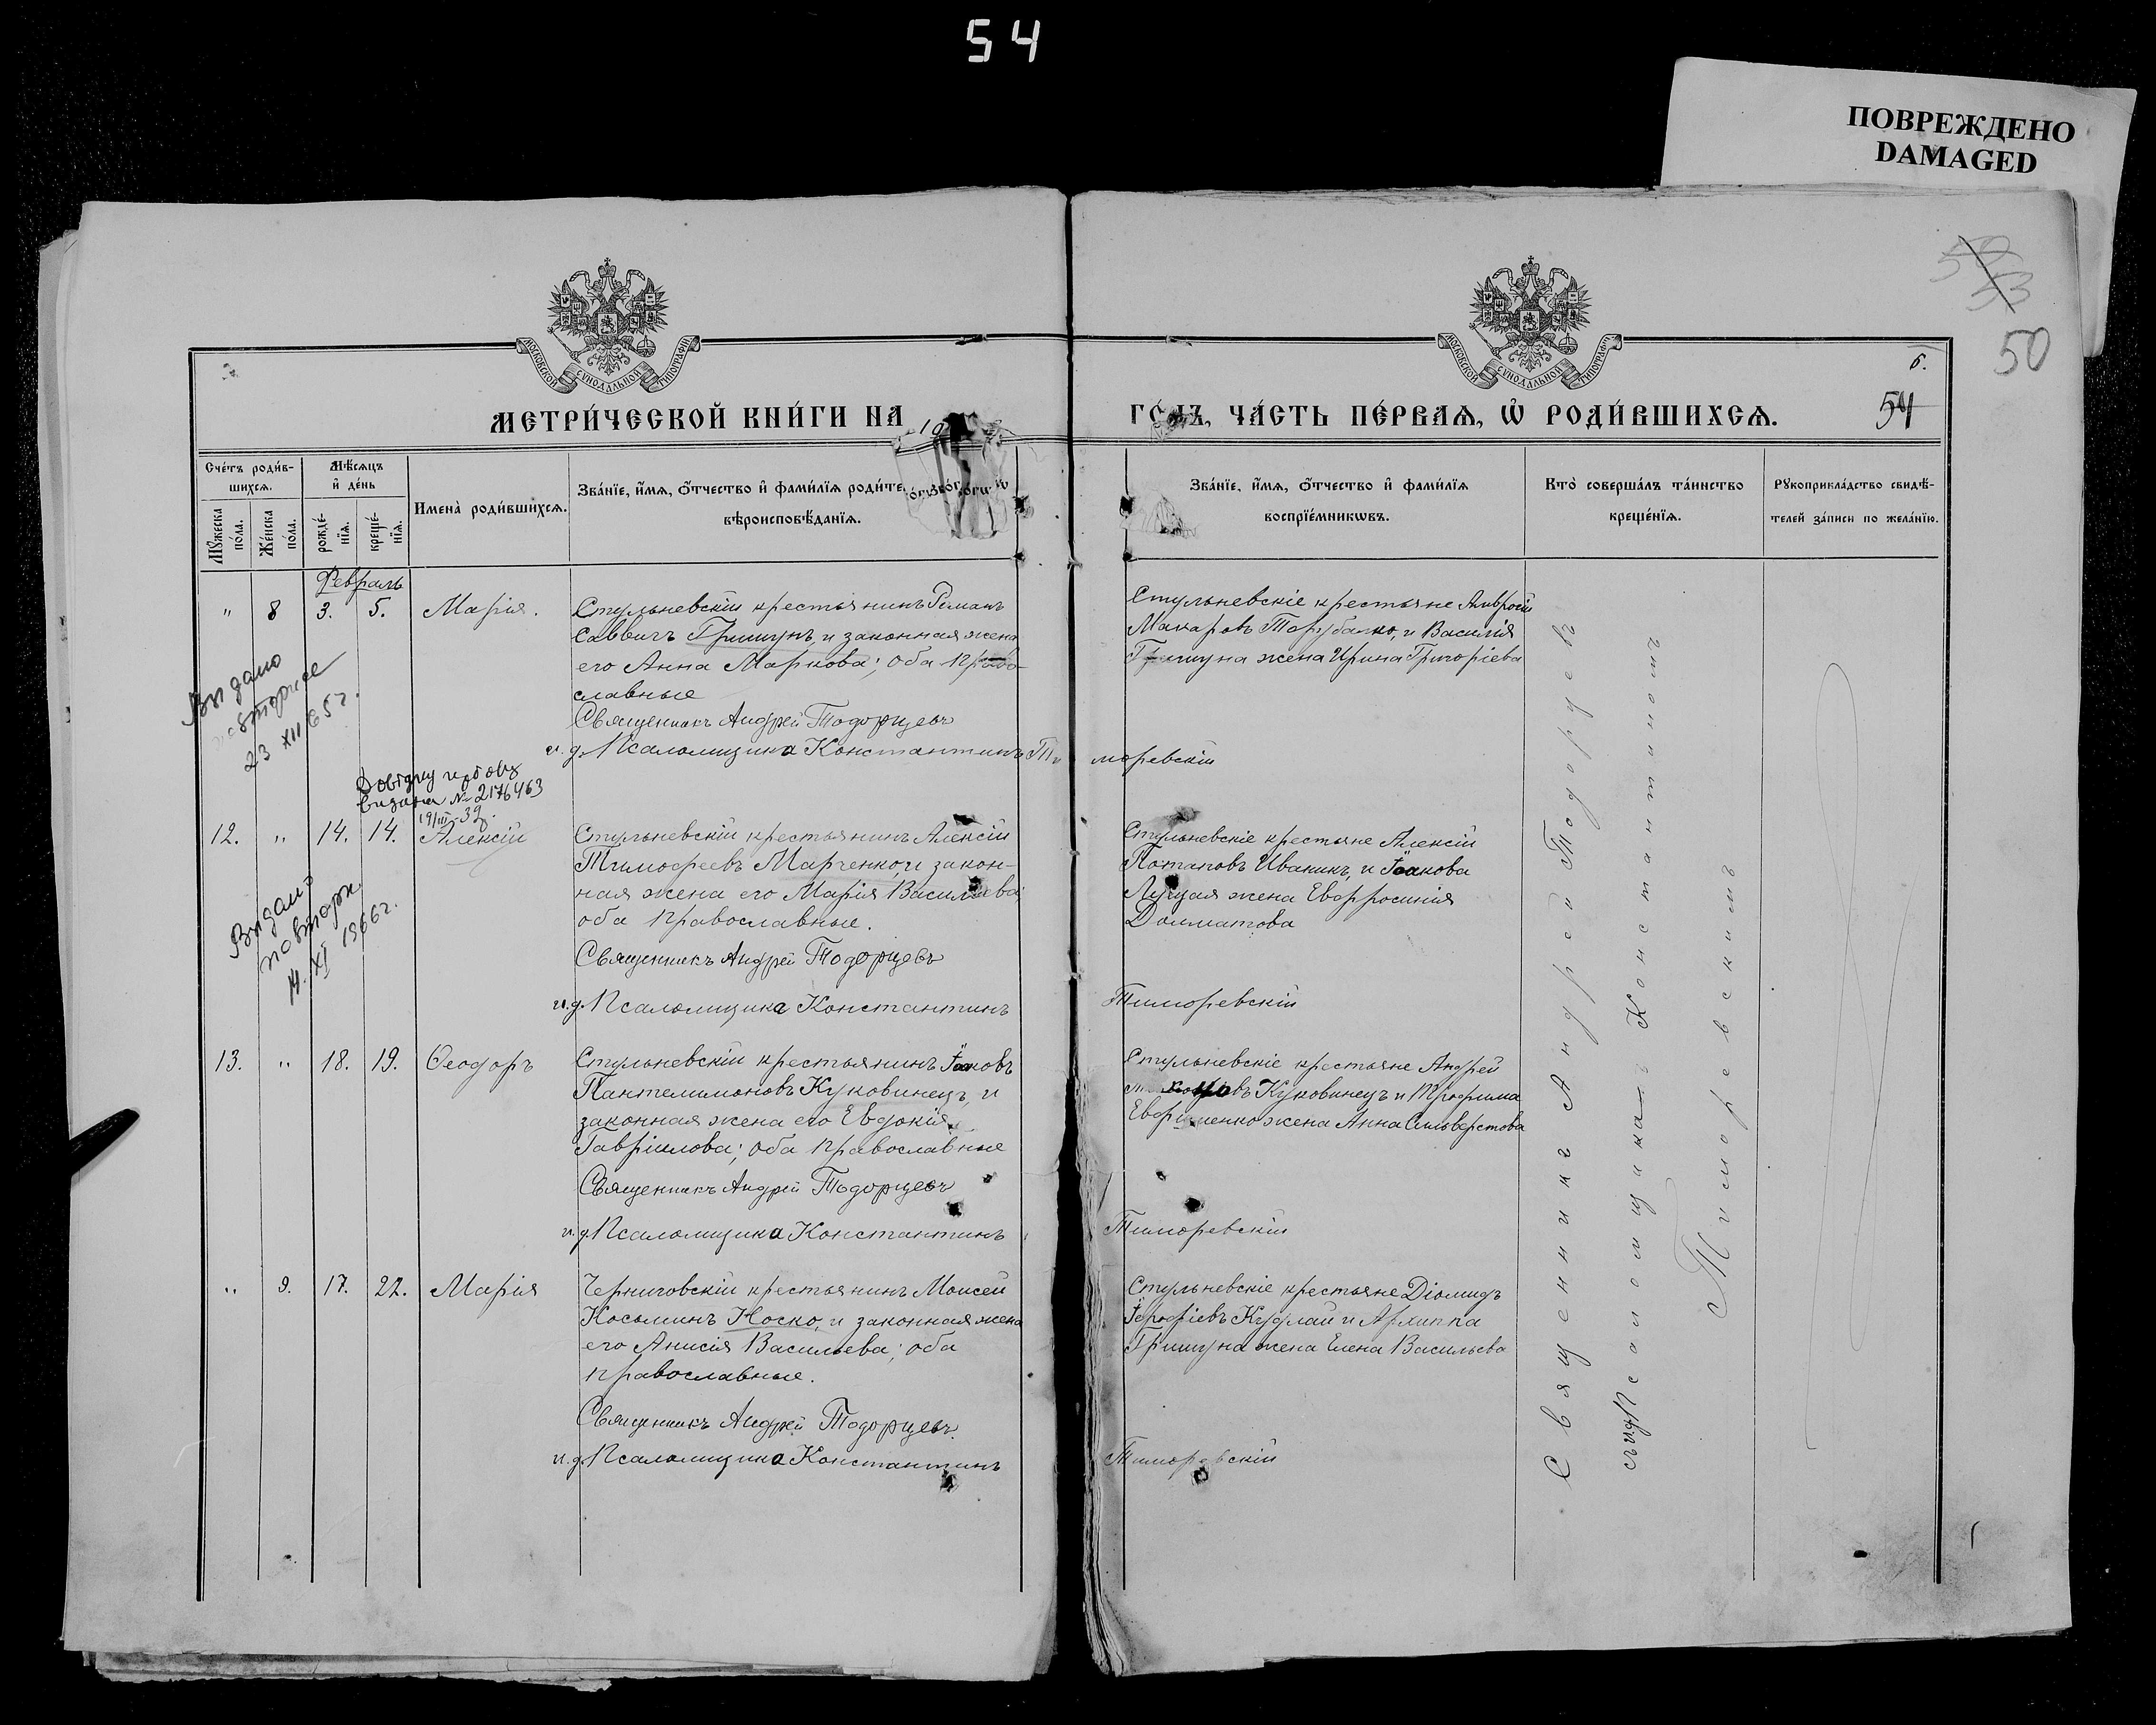 54
ПОВРЕЖДЕНО
DAMAGED
53
50
б.
54
МОСКОВСКОЙ СУНОДАЛЬНОЙ ТИПОГРАФІИ
МОСКОВСКОЙ СУНОДАЛЬНОЙ ТИПОГРАФІИ
МЕТРИ́ЧЕСКОЙ КНИ́ГИ НА 19
ГО́ДЪ, ЧА́СТЬ ПЕ́РВАѦ, Ѡ҆ РОДИ́ВШИХСѦ.
Сче́тъ роди́в-
шихсѧ.
Мꙋ́жеска по́ла.
Же́нска по́ла.
Мѣ́сѧцъ
и҆ де́нь
рожде́-
нїѧ.
креще́-
нїѧ.
Имена̀ роди́вшихсѧ.
Зва́нїе, и҆́мѧ, ѻ҆́тчество и҆ фами́лїѧ роди́те
вѣроисповѣ́данїѧ.
Зва́нїе, и҆́мѧ, ѻ҆́тчество и҆ фами́лїѧ
воспрїе́мникѡвъ.
Кто̀ соверша́лъ та́инство
креще́нїѧ.
Рꙋкоприкла́дство свидѣ́-
телей за́писи по жела́нїю.
Февраль
" 8 3. 5. Марія.
Стульневскій крестьянинъ Романъ
Саввичъ Гришунъ и законная жена
его Анна Маркова; оба право-
славные
Священникъ Андрей Тодорцевъ
и. д. Псаломщика Константинъ Ти моревскій
Стульневскіе крестьяне Амвросій
Макаровъ Торубалко, и Василія
Гришуна жена Ирина Григоріева
Видано
повторное
23 XII 65 г.
Довідку
видана № 2176463
19/III-39.
12. " 14. 14. Алексій
Стульневскій крестьянинъ Алексій
Тимофеевъ Марченко, и закон-
ная жена его Марія Васильева
оба православные.
Священникъ Андрей Тодорцевъ
и. д. Псаломщика Константинъ Тиморевскій
Стульневскіе крестьяне Алексій
Потаповъ Иваникъ, и Іакова
Луцая жена Евфросинія
Долматова
Видано
повторн.
14. XI 1966 г.
13. " 18. 19. Ѳеодоръ
Стульневскій крестьянинъ Іаковъ
Пантелимоновъ Куковинецъ, и
законная жена его Евдокія
Гавріилова; оба православные
Священникъ Андрей Тодорцевъ
и. д. Псаломщика Константинъ Тиморевскій
Стульневскіе крестьяне Андрей
Куковинецъ и Трофима
жена Анна Сильверстова
" 9. 17. 22. Марія
Черниговскій крестьянинъ Моисей
Косьминъ Носко, и законная жена
его Анисія Васильева; оба
православные.
Священникъ Андрей Тодорцевъ.
и. д. Псаломщика Константинъ Тиморевскій
Стульневскіе крестьяне Діомидъ
Іерофіевъ Кудлай и Архиппа
Гришуна жена Елена Васильева
Священникъ Андрей Тодорцевъ
съ и. д. Псаломщика Константиномъ
Тиморевскимъ